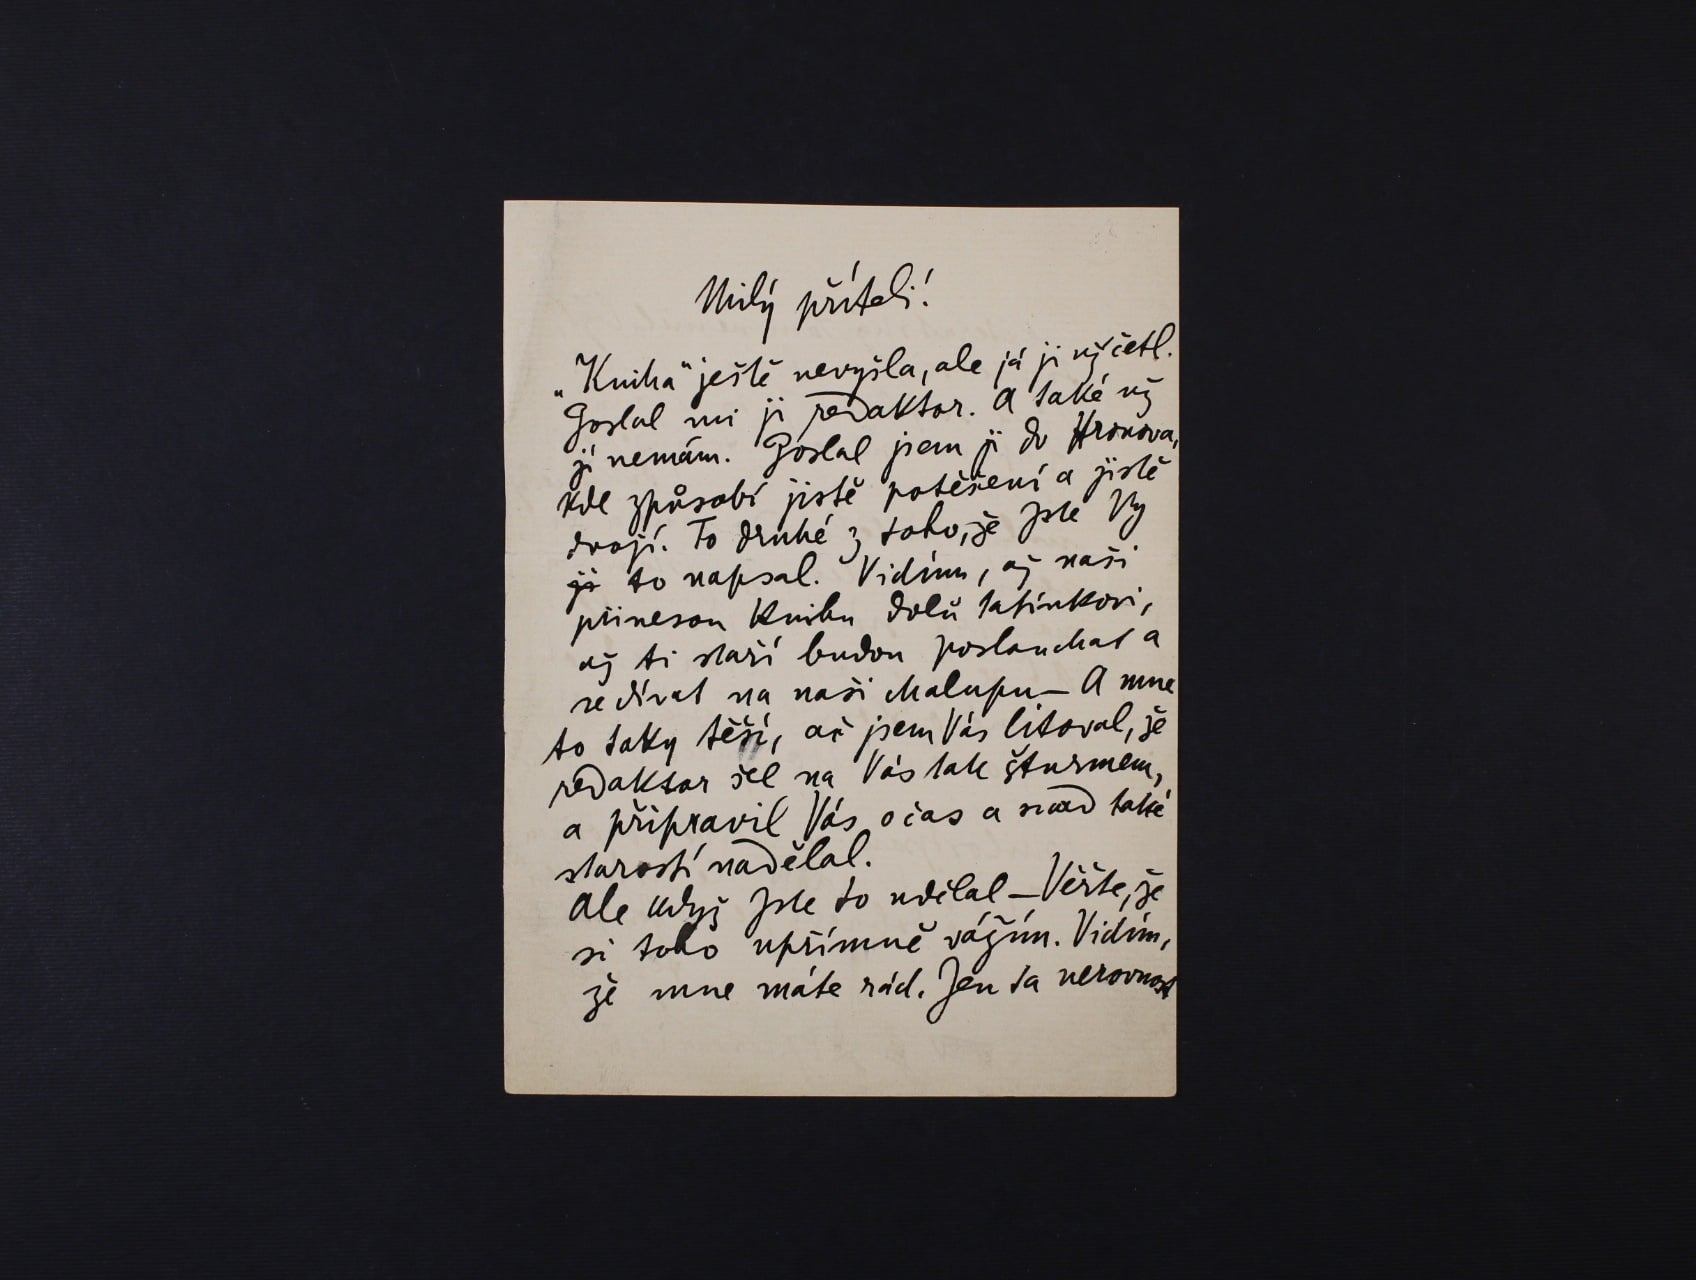 Milý příteli!
„Kniha“ ještě nevyšla, ale já ji už četl.
Poslal mi ji redaktor. A také už
ji nemám. Poslal jsem ji do Hronova,
kde způsobí jistě potěšení a jistě
dvojí. To druhé z toho, že jste Vy
to napsal. Vidím, až naši
přinesou knihu dolů tatínkovi,
až ti staří budou poslouchat a
se dívat na naši chalupu — A mne
to taky těší, ač jsem Vás litoval, že
redaktor šel na Vás tak šturmem,
a připravil Vás o čas a snad také
starostí nadělal.
Ale když jste to udělal — Věřte, že
si toho upřímně vážím. Vidím,
že mne máte rád. Jen ta nerovnost